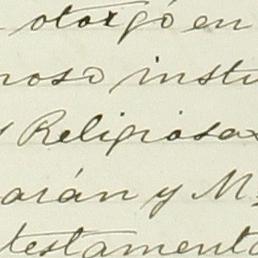 otorgó en
noso instu
Religiosas
arán y M
testamento